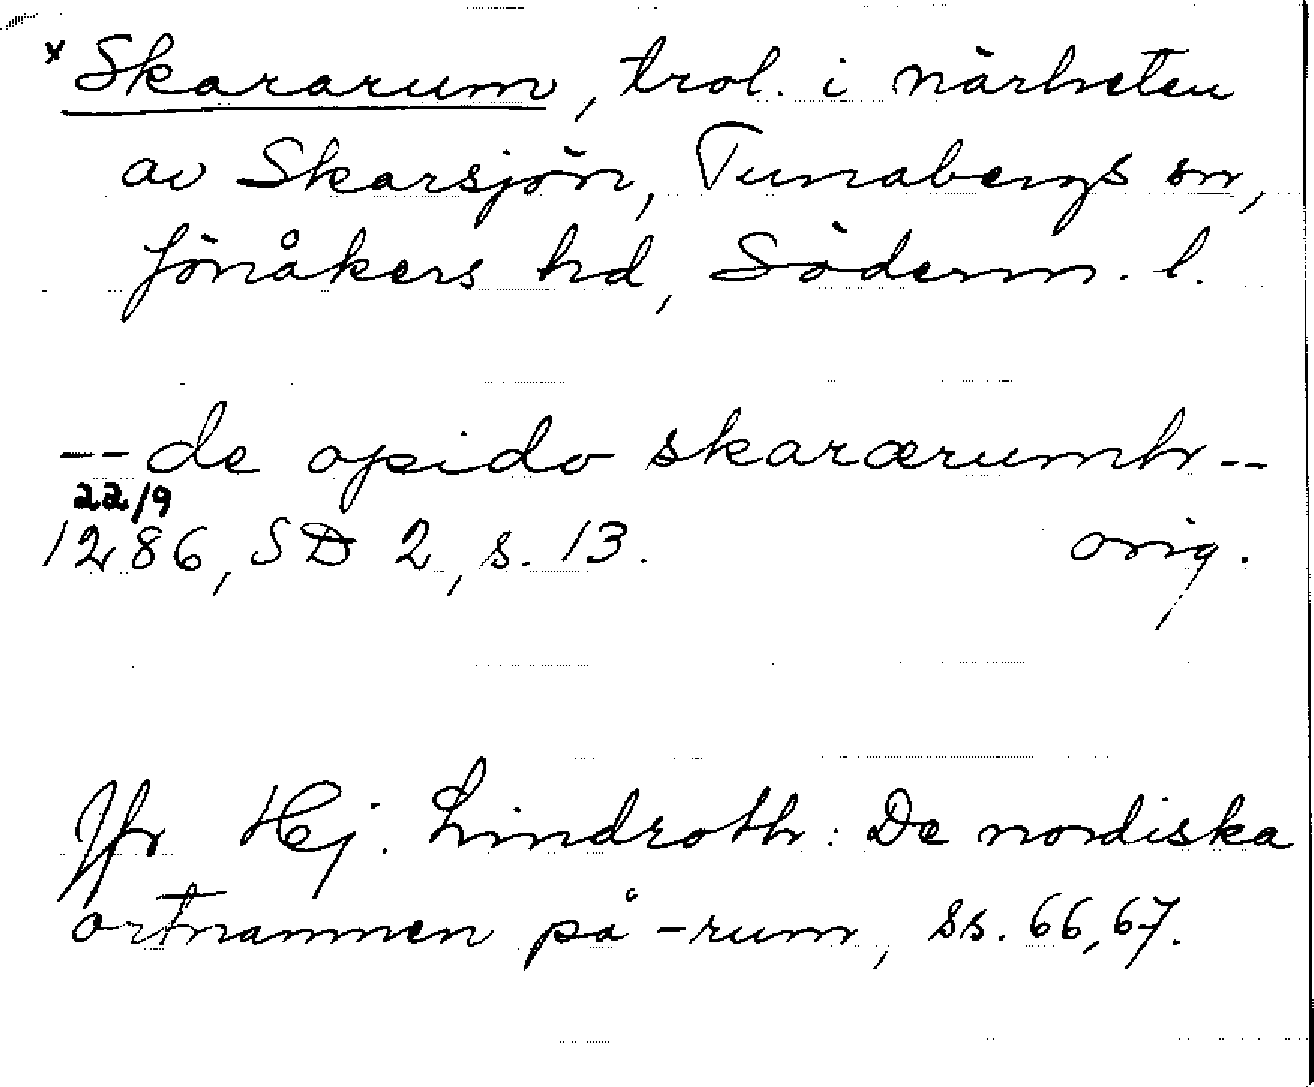 *Skararum, trol. i närheten
av Skarsjön, Tunabergs sn,
Jönåkers hd, Söderm. l.
-- de opido skarærumh --
22/9
1286, SD 2, s. 13. orig.
Jfr Hj. Lindroth: De nordiska
ortnamnen på -rum, ss. 66, 67.